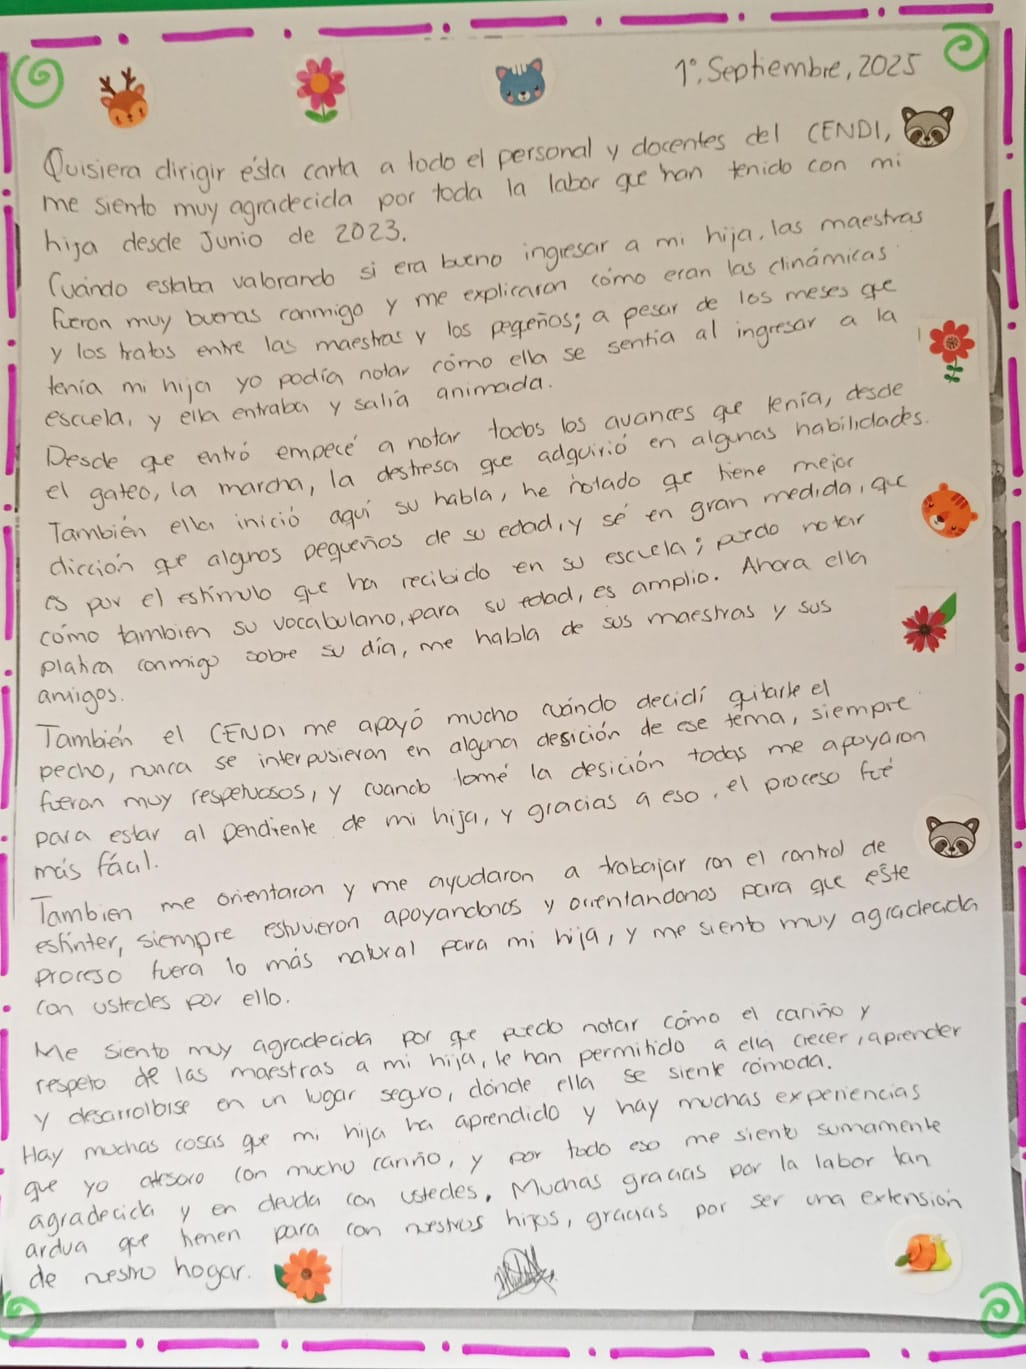 1°, Septiembre, 2025
Quisiera dirigir ésta carta a todo el personal y docentes del CENDI,
me siento muy agradecida por toda la labor que han tenido con mi
hija desde Junio de 2023.
Cuándo estaba valorando si era bueno ingresar a mi hija, las maestras
fueron muy buenas conmigo y me explicaron cómo eran las dinámicas
y los tratos entre las maestras y los pequeños; a pesar de los meses que
tenía mi hija yo podía notar cómo ella se sentía al ingresar a la
escuela, y ella entraba y salía animada.
Desde que entró empecé a notar todos los avances que tenía, desde
el gateo, la marcha, la destresa que adquirió en algunas habilidades.
También ella inició aquí su habla, he notado que tiene mejor
dicción que algunos pequeños de su edad, y sé en gran medida, que
es por el estímulo que ha recibido en su escuela; puedo notar
cómo tambien su vocabulario, para su edad, es amplio. Ahora ella
platica conmigo sobre su día, me habla de sus maestras y sus
amigos.
También el CENDI me apoyó mucho cuándo decidí quitarle el
pecho, nunca se interpusieron en alguna desición de ese tema, siempre
fueron muy respetuosos, y cuando tomé la desición todas me apoyaron
para estar al pendiente de mi hija, y gracias a eso, el proceso fué
más fácil.
Tambien me orientaron y me ayudaron a trabajar con el control de
esfínter, siempre estuvieron apoyandonos y orientandonos para que éste
proceso fuera lo más natural para mi hija, y me siento muy agradecida
con ustedes por ello.
Me siento muy agradecida por que puedo notar cómo el cariño y
respeto de las maestras a mi hija, le han permitido a ella crecer, aprender
y desarrollarse en un lugar seguro, dónde ella se siente cómoda.
Hay muchas cosas que mi hija ha aprendido y hay muchas experiencias
que yo atesoro con mucho cariño, y por todo eso me siento sumamente
agradecida y en deuda con ustedes. Muchas gracias por la labor tan
ardua que tienen para con nuestros hijos, gracias por ser una extensión
de nestro hogar.